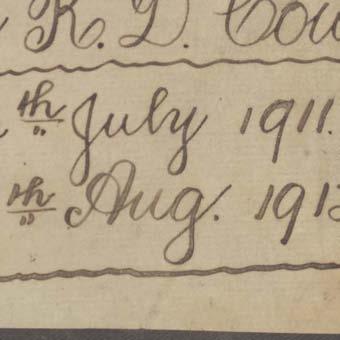 R. D. Cou
th July 1911.
th Aug. 191